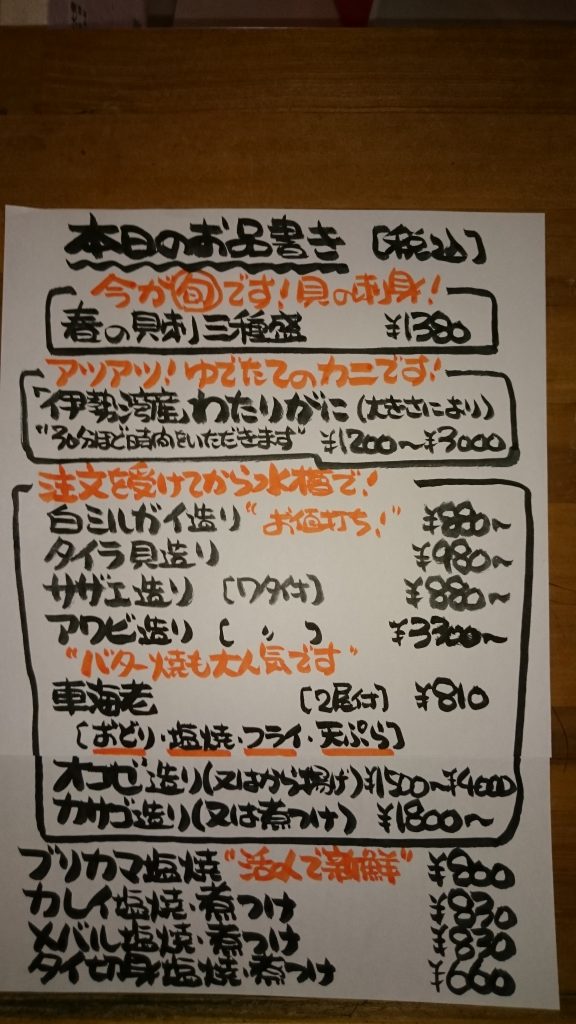 本日のお品書き [税込]
今が旬です!貝の刺身!
春の貝刺三種盛 ¥1380
アツアツ!ゆでたてのカニです!
「伊勢湾産」わたりがに(大きさにより)
"30分ほど時間をいただきます" ¥1200〜¥3000
注文を受けてから水槽で!
白ミルガイ造り "お値打ち!" ¥880〜
タイラ貝造り ¥980〜
サザエ造り [ワタ付] ¥880〜
アワビ造り [ 〃 ] ¥3300〜
"バター焼も大人気です"
車海老 [2尾付] ¥810
[おどり・塩焼・フライ・天ぷら]
オコゼ造り(又はから揚げ) ¥1500〜¥4000
カサゴ造り(又は煮つけ) ¥1800〜
ブリカマ塩焼 "活〆で新鮮" ¥800
カレイ塩焼・煮つけ ¥830
メバル塩焼・煮つけ ¥830
タイ切身塩焼・煮つけ ¥660